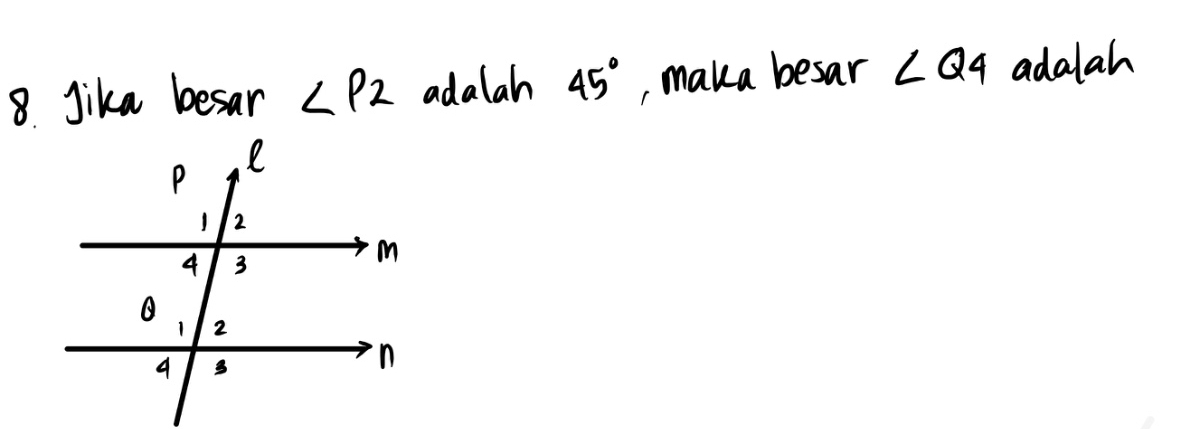 8. Jika besar ∠P2 adalah 45°, maka besar ∠Q4 adalah
P l
1 2
m
4 3
Q
1 2
n
4 3